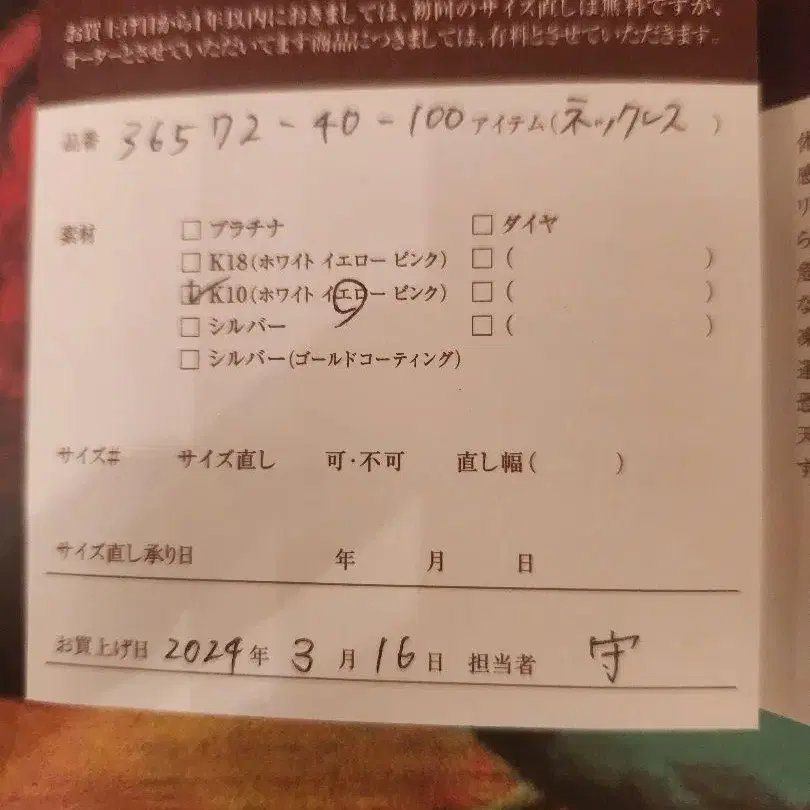 お買上げ日から1年以内におきましては、初回のサイズ直しは無料ですが、
オーダーとさせていただいてます商品につきましては、有料とさせていただきます。
品番 36572-40-100 アイテム(ネックレス)
素材 □ プラチナ □ ダイヤ
□ K18(ホワイト イエロー ピンク) □ ( )
☑ K10(ホワイト イエロー ピンク) □ ( )
□ シルバー □ ( )
□ シルバー(ゴールドコーティング)
サイズ# サイズ直し 可・不可 直し幅( )
サイズ直し承り日 年 月 日
お買上げ日 2024年 3月16日 担当者 守